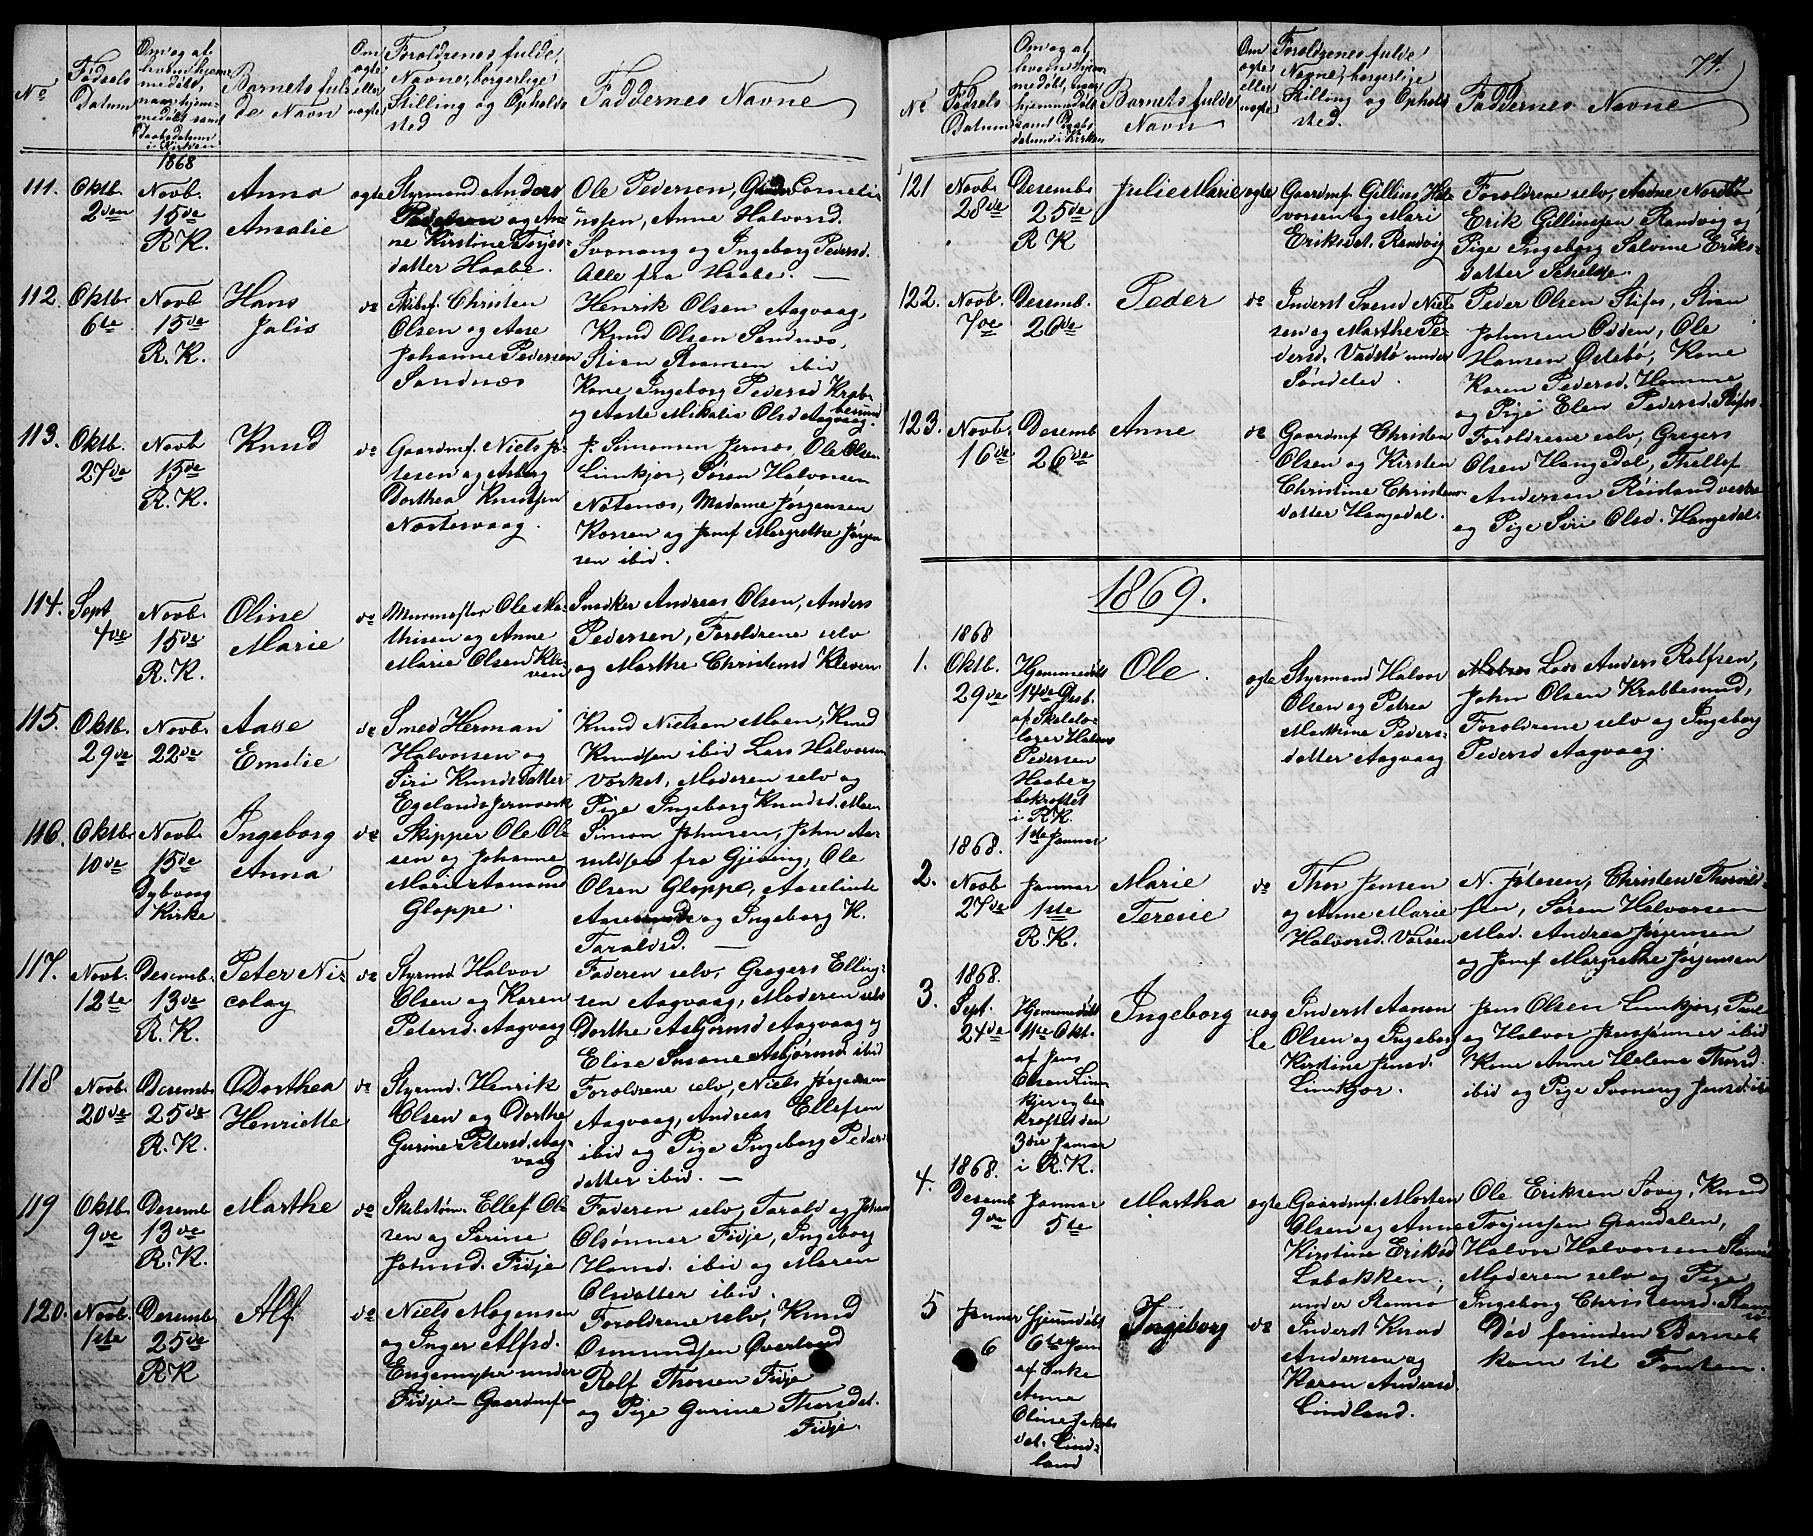 No
Fødsels
Datum
Om og at
hvem hjem-
medøbt,
naar hjem-
medøbt samt
Daabsdatum
i Kirken
Barnets ful-
de Navn
Om
ægte
eller
uægte
Forældrenes fulde
Navne, borgerlige
Stilling og Opholds
sted
Faddernes Navne
1868
111.
Oktb.
2den
Novb.
15de
R.K.
Anna
Amalie
ægte
Styrmand Anders
Pedersen og An-
ne Kirstine Terjes-
datter Haabe.
Ole Pedersen, Corneli-
ussen, Anne Halvorsd.
Svenang og Ingeborg Pedersd.
Alle fra Haabe. —
112.
Oktb.
6te
Novb.
15de
R.K.
Hans
Julis
do
Skibsf. Christen
Olsen og Aase
Johanne Pedersen
Sandnæs
Henrik Olsen Aagvaag,
Knud Olsen Sandnæs,
Stian ibid
Kone Ingeborg Pedersd Krabe-
og Aaste Mikalia Olsd Aagvaag.
besund
113.
Oktb.
27de
Novb.
15de
R.K.
Knud
do
Gaardmf. Niels Jø-
tesen og Asborg
Dorthea Knudsen
Næstesvaag.
J. Simonsen Jernæs, Ole Olsen
Limkjær, Søren Halvorsen
Notenæs, Madame Jørgensen
Kossen og Jomf Margrethe Jørgen
sen ibid.
114.
Sept
4de
Novb.
15de
R.K.
Oline
Marie
do
Murmester Ole Ma-
thisen og Anne
Marie Olsen Kle-
ven
Snedker Andreas Olsen, Anders
Pedersen, Forældrene selv
og Marthe Christensd Kleven
115.
Oktb.
29de
Novb.
22de
Aase
Emelie
do
Smed Herman
Halvorsen og
Siri Knudsdatter
Egelands jernværk
Knud Nielsen Moen, Knud
Knudsen ibid Lars Halvorsen
Værket, Moderen selv og
Pige Ingeborg Knudsd. Moen
116.
Oktb.
10de
Novb.
15de
Dybvaag
Kirke
Ingeborg
Anna
do
Skipper Ole Ol-
sen og Johanne
Marie Aanonsd
Gloppe.
Simon Johnsen, John Aa-
nildsen fra Gjeving, Ole
Olsen Gloppe, Aaselinde
og Ingeborg K.
Taraldsd. —
117.
Novb.
12te
Desemb.
13de
R.K.
Peter Ni-
colay
do
Styrmd Halvor
Olsen og Karen
Petersd. Aagvaag
Faderen selv, Gregers Elling-
sen Aagvaag, Moderen selv
Dorthe Asbjørnsd Aagvaag og
Elise Susane Asbjørnsd ibid
118
Novb.
20de
Desemb.
25de
R.K.
Dorthea
Henriette
do
Styrmd. Henrik
Olsen og Dorthe
Gurine Petersd. Aag-
vaag
Forældrene selv, Niels Jørgensen
Aagvaag, Andreas Ellefsen
ibid og Pige Ingeborg Peder
datter ibid. —
119
Oktb.
9de
Desemb
13de
R.K.
Marthe
do
Skibstøm. Ellef Ol-
sen og Serine
Johnsd. Fidje
Faderen selv, Tarald og Johan
Olsønner Fidje, Ingeborg
Hansd. ibid og Maren
Olsdatter ibid.
120.
Novb.
1ste
Desemb
25de
R.K
Alf
do
Niels Mogensen
og Inger Alfsd.
Engemyhr under
Fidje — Gaardmf—
Forældrene selv, Knud
Osmundsen Øverland
Rolf Thorsen Fidje
og Pige Gurine Thorsdat.
Fidje.
74.
No
Fødsels
Datum
Om og at
hvem hjem-
medøbt, naar
hjemmedøbt
samt Daabs
datum i Kirken
Barnets fulde
Navn
Om
ægte
eller
uægte
Forældrenes fulde
Navne, borgerlige
Stilling og Ophold
sted.
Faddernes Navne
121
Novb.
28de
Desemb
25de
R K
Julie Marie
ægte
Gaardmf Gilling Hal-
vorsen og Mari
Eriksdat. Randvig
Forældrene selv, Aadne Nordbø
Erik Gillingsen Randvig og
Pige Ingeborg Salvine Eriks-
datter
122.
Novb.
7de
Desemb.
26de
Peder
do
Inderst Svend Niel-
sen og Marthe Pe-
dersd. Vadstø under
Søndeled.
Peder Olsen Stifos, Stian
Johnsen Odden, Ole
Hansen Østebø, Kone
Karen Pedersd. Homme
og Pige Elen Pedersd. Stifos
123.
Novb.
16de
Desemb
26de
Anne
do
Gaardmf Christen
Olsen og Kirsten
Christine Christens-
datter Hangedal.
Forældrene selv, Gregers
Olsen Hangedal, Thellef
Andersen Røisland vestre
og Pige Siri Olsd. Hangedal
1869.
1.
1868
Oktb.
29de
Hjemmedøbt
14de Desb
af Skolelæ-
rer Halvor
Pedersen
Haabe og
bekræftet
i R.K.
1ste Januar
Ole
ægte
Styrmand Halvor
Olsen og Petrea
Marthine Peders-
datter Aagvaag
Lars Anders Rolfsen,
John Olsen Krabbesund,
Forældrene selv og Ingeborg
Pedersd Aagvaag.
2.
1868.
Novb
27de
Januar
1ste
R.K.
Marie
Teresie
do
Thor Jensen
og Anne Marie
Halvorsd. Vørsen
N. Jøtesen, Christen Thorvild-
sen, Søren Halvorsen
Mad. Andrea Jørgensen
og Jomf Margrethe Jørgensen
3.
1868.
Sept.
24de
Hjemmedøbt
11te Okt.
af Jens
Olsen Lim-
kjer og be-
kræftet den
3die Januar
i R.K.
Ingeborg
uæg
te
Inderst Aanon
Olsen og Ingeborg
Kirstine Jensd.
Limkjær.
Jens Olsen Limkjær, Paul
og Halvor Jenssønner ibid
Kone Anne Helene Thorsd
ibid og Pige Svenang Jensd. ib
4.
1868.
Desemb
9de
Januar
5te
Martha
ægte
Gaardmf. Morten
Olsen og Anne
Kirstine Eriksd
Løbakken,
under Ramsø
Ole Eriksen Søvig, Knud
Torjussen Grændalen,
Halvor Halvorsen Ramsø
Moderen selv og Pige
Ingeborg Christensd. Ramsø
5
Januar
6
Hjemdøbt
6te Jan
af Enke
Anne
Oline Jakobs
dat. Lind-
land
Ingeborg
do
Inderst Knud
Andersen og
Karen Andersd.
Lindland.
Død forinden Barnet
kom til Fonten.